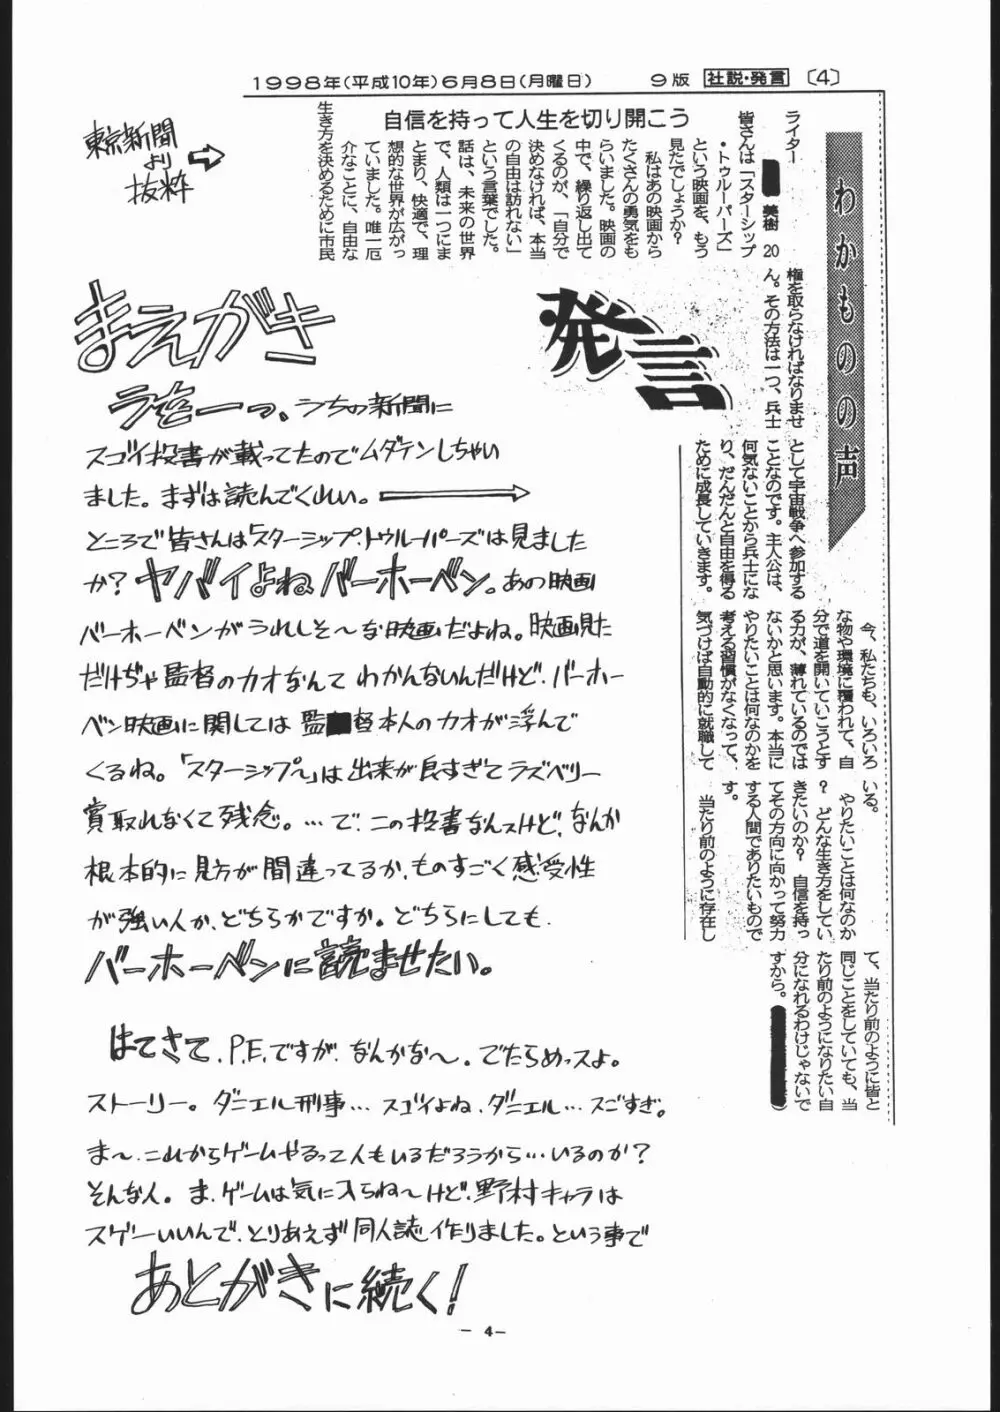 1998年(平成10年)6月8日(月曜日)　9版　社説・発言　〔4〕
東京新聞
より
抜粋
わかものの声
発言
自信を持って人生を切り開こう
ライター
美樹　20
皆さんは「スターシップ
・トゥルーパーズ」
という映画を、もう
見たでしょうか？
私はあの映画から
たくさんの勇気をも
らいました。映画の
中で、繰り返し出て
くるのが、「自分で
決めなければ、本当
の自由は訪れない」
という言葉でした。
話は、未来の世界
で、人類は一つにま
とまり、快適で、理
想的な世界が広がっ
ていました。唯一厄
介なことに、自由な
生き方を決めるために市民
権を取らなければなりませ
ん。その方法は一つ、兵士
として宇宙戦争へ参加する
ことなのです。主人公は、
何気ないことから兵士にな
り、だんだんと自由を得る
ために成長していきます。
今、私たちも、いろいろ
な物や環境に覆われて、自
分で道を開いていこうとす
る力が、薄れているのでは
ないかと思います。本当に
やりたいことは何なのかを
考える習慣がなくなって、
気づけば自動的に就職して
いる。
やりたいことは何なのか
？　どんな生き方をしてい
きたいのか？　自信を持っ
てその方向に向かって努力
する人間でありたいもので
す。
当たり前のように存在し
て、当たり前のように皆と
同じことをしていても、当
たり前のようになりたい自
分になれるわけじゃないで
すから。
まえがき
うをーっ、うちの新聞に
スゴイ投書が載ってたのでムダテンしちゃい
ました。まずは読んでくれい。
ところで皆さんは「スターシップ・トゥルーパーズ」は見ました
か？ヤバイよねバーホーベン。あの映画
バーホーベンがうれしそ〜な映画だよね。映画見た
だけぢゃ監督のカオなんてわかんないんだけど、バーホー
ベン映画に関しては監督本人のカオが浮んで
くるね。「スターシップ〜」は出来が良すぎてラズベリー
賞取れなくて残念。…で、この投書なんスけど、なんか
根本的に見方が間違ってるか、ものすごく感受性
が強い人か、どちらかですか。どちらにしても、
バーホーベンに読ませたい。
はてさて、P.E.ですが、なんかな〜。でたらめっスよ。
ストーリー。ダニエル刑事…スゴイよね、ダニエル…スごすぎ。
ま〜、これからゲームやるって人もいるだろうから…いるのか？
そんな人。ま、ゲームは気に入らね〜けど、野村キャラは
スゲーいいんで、とりあえず同人誌作りました。という事で
あとがきに続く！
- 4 -